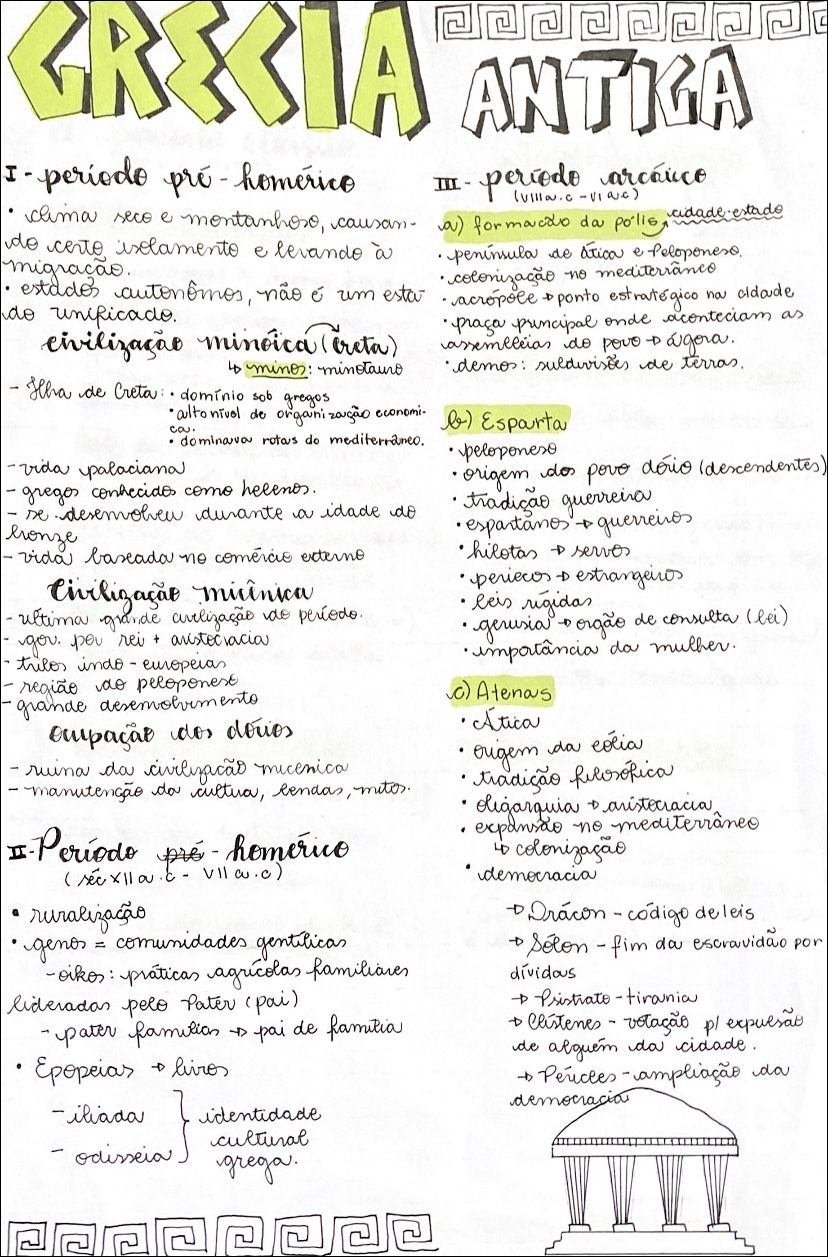 GRÉCIA ANTIGA
I - período pré - homérico
• clima seco e montanhoso, causan-
do certo isolamento e levando à
migração.
• estados autonômos, não é um esta-
do unificado.
civilização minóica (Creta)
↳ minos: minotauro
- Ilha de Creta: • domínio sob gregos
• alto nível de organização economi-
ca.
• dominava rotas do mediterrâneo.
- vida palaciana
- gregos conhecidos como helenos.
- se desenvolveu durante a idade do
bronze
- vida baseada no comércio externo
Civilização micênica
- ultima grande civilização do período.
- gov. por rei + aristocracia
- tribos indo - europeias
- região do peloponeso
- grande desenvolvimento
ocupação dos dórios
- ruina da civilização micenica
- manutenção da cultura, lendas, mitos.
II - Período pré - homérico
(séc XII a.c - VII a.c)
• ruralização
• genos = comunidades gentílicas
- oikos: práticas agrícolas familiares
lideradas pelo Pater (pai)
- pater familias → pai de família
• Epopeias → livros
- ilíada
- odisseia
identidade
cultural
grega.
III - período arcáico
(VIII a.c - VI a.c)
a) formacão da pólis → cidade-estado
• península de ática e Peloponeso.
• colonização no mediterrâneo
• acrópole → ponto estratégico na cidade
• praça principal onde aconteciam as
assembléias do povo → ágora.
• demos: subdivisões de terras.
b) Esparta
• peloponeso
• origem dos povo dório (descendentes)
• tradição guerreira
• espartanos → guerreiros
• hilotas → servos
• periecos → estrangeiros
• leis rígidas
• gerusia → orgão de consulta (lei)
• importância da mulher.
c) Atenas
• Ática
• origem da eólia
• tradição filosófica
• oligarquia → aristocracia
• expansão no mediterrâneo
↳ colonização
• democracia
→ Drácon - código de leis
→ Sólon - fim da escravidão por
dívidas
→ Pisistrato - tirania
→ Clístenes - votação p/ expulsão
de alguém da cidade.
→ Péricles - ampliação da
democracia